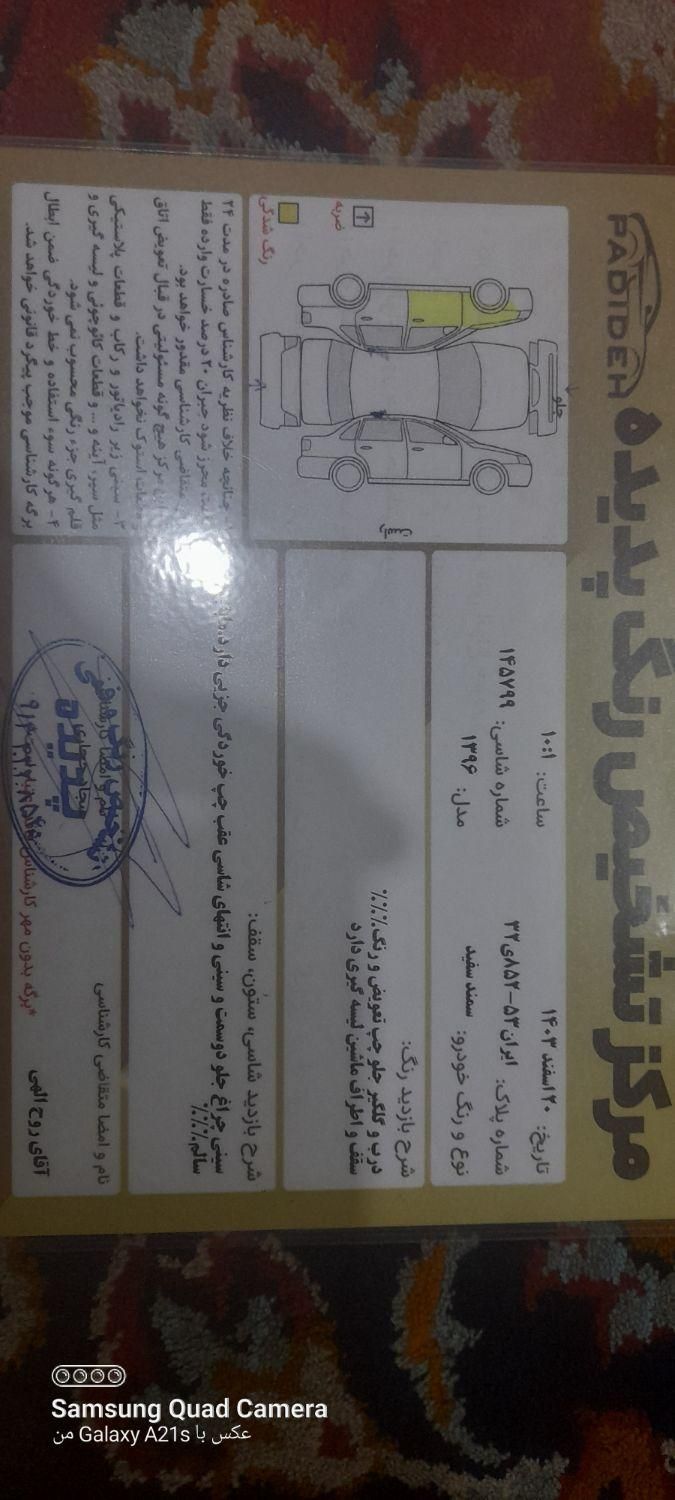 مرکز تشخیص رنگ پدیده
PADIDEH
تاریخ: ۲۰ اسفند ۱۴۰۳
ساعت: ۱۰:۱
شماره پلاک: ایران۵۳-۸۵۲ی۳۲
شماره شاسی: ۱۴۵۷۹۹
نوع و رنگ خودرو: سمند سفید
مدل: ۱۳۹۶
شرح بازدید رنگ:
درب و گلگیر جلو چپ تعویض و رنگ.٪٪٪
سقف و اطراف ماشین لیسه گیری دارد
شرح بازدید شاسی، ستون، سقف:
سینی چراغ جلو دوسمت و سینی و انتهای شاسی عقب چپ خوردگی جزیی دارد.
سالم.٪٪٪
نام و امضا متقاضی کارشناسی
آقای روح الهی
نام و امضا کارشناس
پدیده
*برگه بدون مهر کارشناس
جلو
ضربه
رنگ شدگی
چنانچه خلاف نظریه کارشناس صادره در مدت ۲۴
محرز شود جبران ۲۰ درصد خسارت وارده فقط
متقاضی کارشناسی مقدور خواهد بود.
مرکز هیچ گونه مسئولیتی در قبال تعویض اتاق
استوک نخواهد داشت.
۳- سینی زیر رادیاتور و رکاب و قطعات پلاستیکی
مثل سپر آینه و ... و قطعات کائوچوئی و لیسه گیری و
قلم گیری جزء رنگی محسوب نمی شود.
۴- هرگونه سوء استفاده و خط خوردگی ضمن ابطال
برگه کارشناسی موجب پیگرد قانونی خواهد شد.
Samsung Quad Camera
عکس با Galaxy A21s من